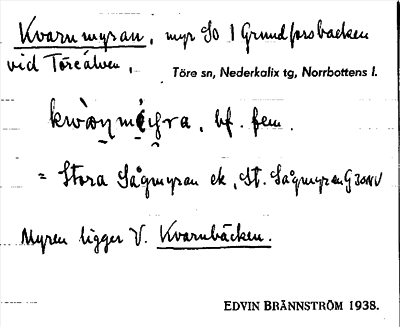 Kvarnmyran, myr SO I Grundforsbacken
vid Töreälven,
Töre sn, Nederkalix tg, Norrbottens l.
bf. fem.
= Stora Sågmyran ek, St. Sågmyran G30NV
Myren ligger V. Kvarnbäcken.
EDVIN BRÄNNSTRÖM 1938.